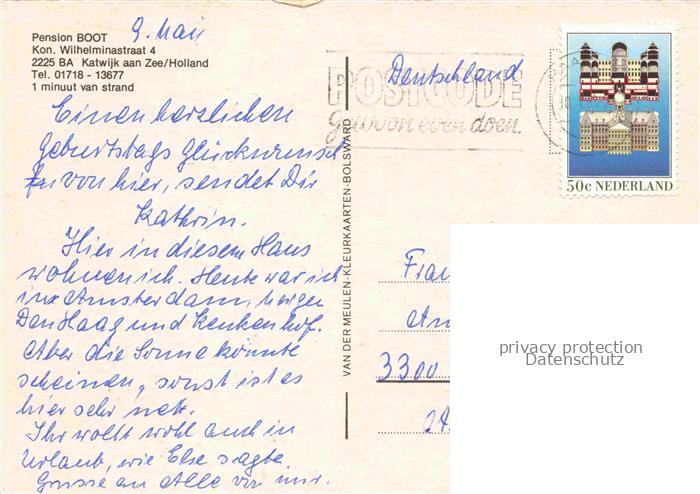 Pension BOOT
Kon. Wilhelminastraat 4
2225 BA Katwijk aan Zee/Holland
Tel. 01718 - 13677
1 minuut van strand
9. Mai
Einen herzlichen
Geburtstags Glückwunsch
von hier, sendet Dir
Kathrin.
Hier in diesem Haus
wohnen ich. Heute war ich
in Amsterdam, morgen
Den Haag und Keukenhof.
Aber die Sonne könnte
scheinen, sonst ist es
hier sehr nett.
Ihr wollt wohl auch in
Urlaub, wie Else sagte.
Grüsse an Alle von mir.
VAN DER MEULEN-KLEURKAARTEN-BOLSWARD
Deutschland
POSTCODE
gewoon even doen.
50c NEDERLAND
Frau
An
3300
privacy protection
Datenschutz